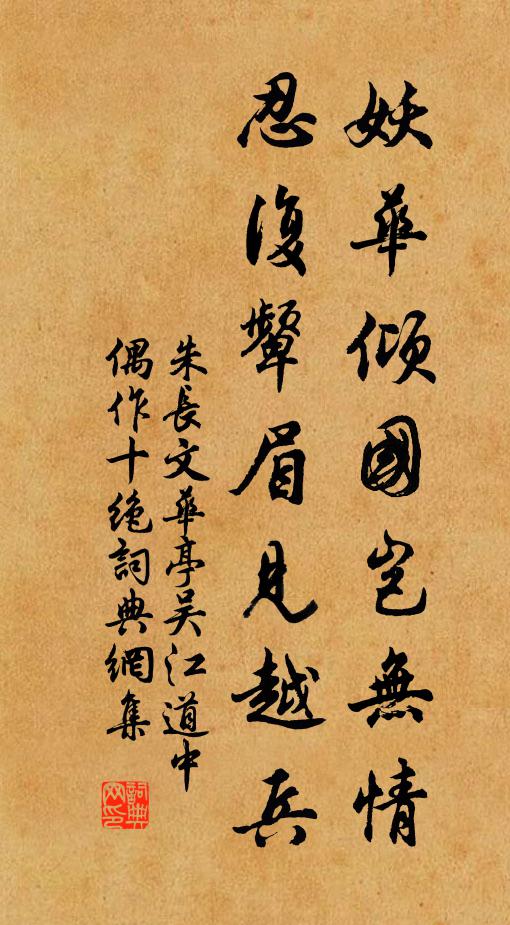 妖華傾國豈無情
忍復顰眉見越兵
朱長文華亭吴江道中
偶作十絶詞典網集
詞典网印